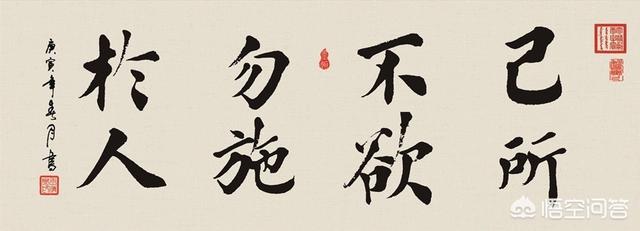 己所
不欲
勿施
於人
庚寅年春月書
悟空问答